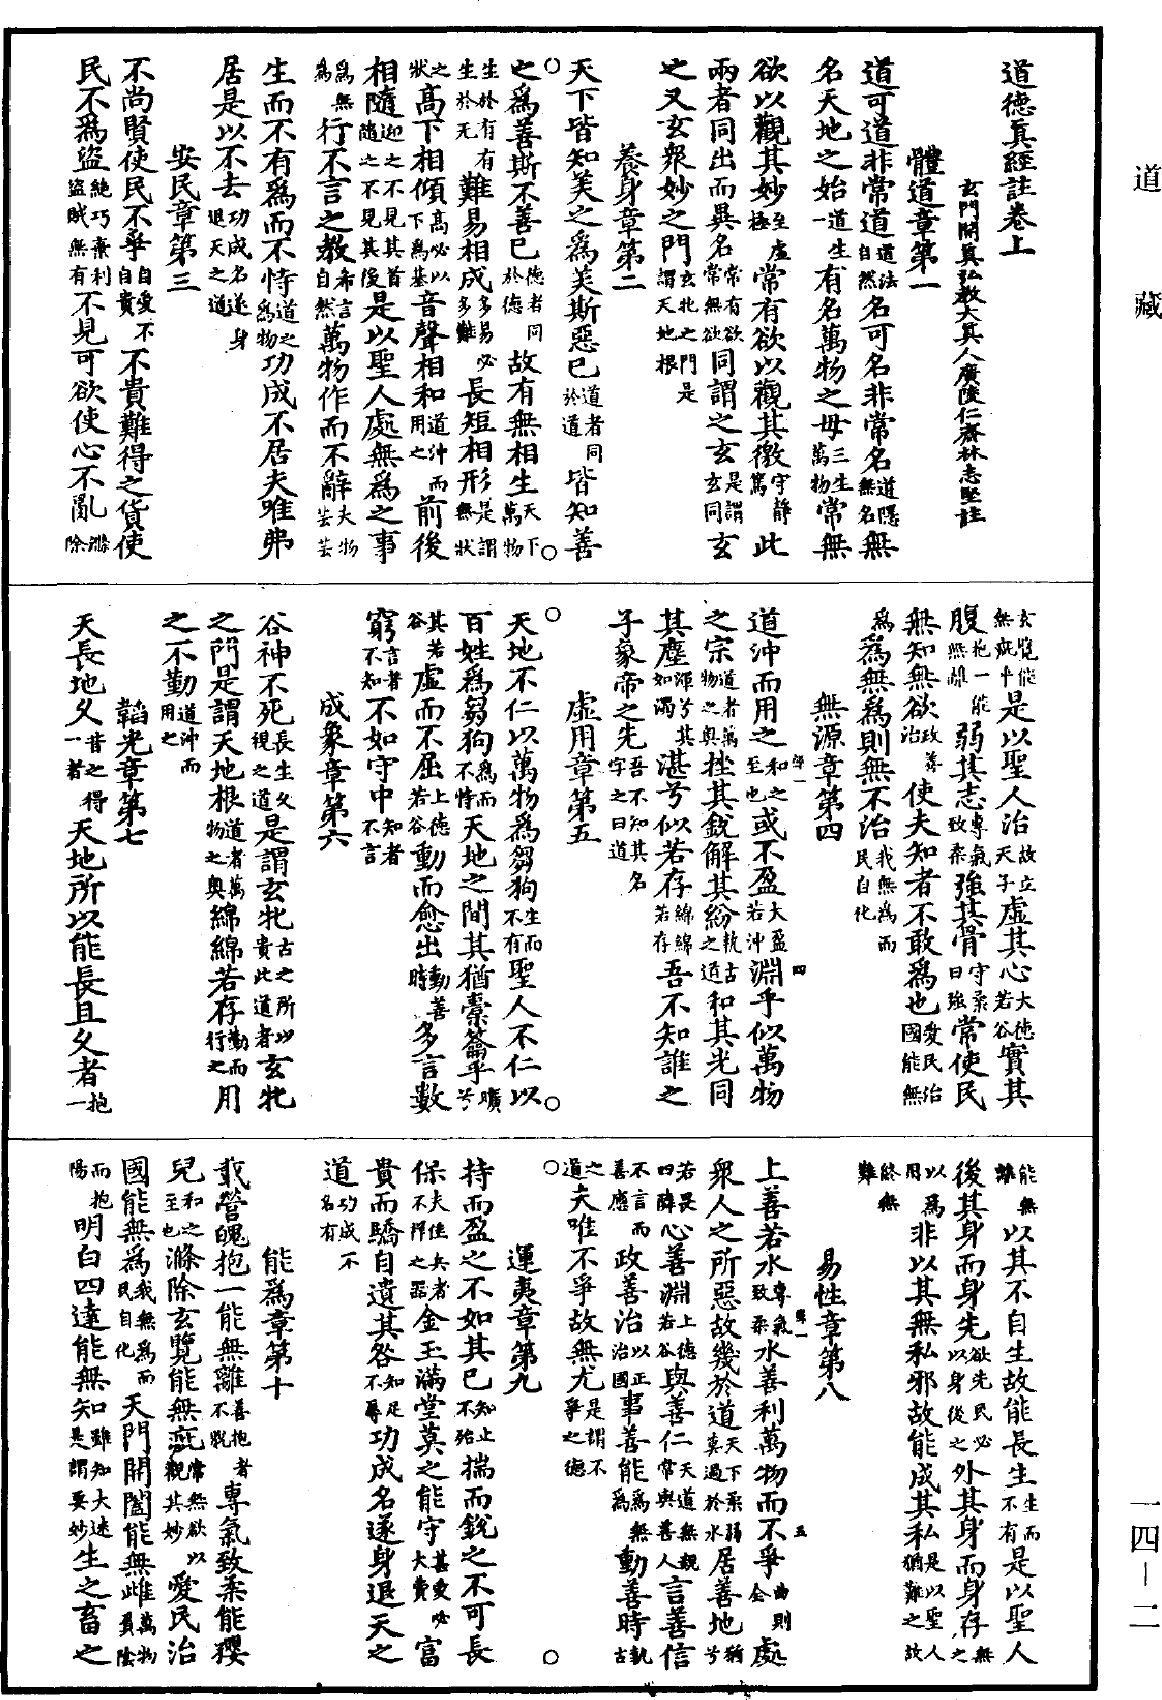 道藏
道德真經註卷上
玄門開真弘教大真人廣陵仁齋林志堅註
體道章第一
道可道非常道道法自然名可名非常名道隱無名無
名天地之始道生一有名萬物之母三生萬物常無
欲以觀其妙至虛極常有欲以觀其徼守靜篤此
兩者同出而異名常有欲常無欲同謂之玄是謂玄同玄
之又玄衆妙之門玄牝之門是謂天地根
養身章第二
天下皆知美之爲美斯惡已道者同於道皆知善
之爲善斯不善已德者同於德故有無相生天下萬物
生於有有生於无難易相成多易必多難長短相形是謂無狀
之狀高下相傾高必以下爲基音聲相和道沖而用之前後
相隨迎之不見其首隨之不見其後是以聖人處無爲之事
爲無爲行不言之教希言自然萬物作而不辭夫物芸芸
生而不有爲而不恃道之爲物功成不居夫唯弗
居是以不去功成名遂身退天之道
安民章第三
不尚賢使民不爭自愛不自貴不貴難得之貨使
民不爲盜絕巧棄利盜賊無有不見可欲使心不亂滌除
玄覽能無疵乎是以聖人治故立天子虛其心大德若谷實其
腹抱一能無離弱其志專氣致柔強其骨守柔曰強常使民
無知無欲政善治使夫知者不敢爲也愛民治國能無
爲爲無爲則無不治我無爲而民自化
無源章第四
道沖而用之和之至也或不盈大盈若沖淵乎似萬物
之宗道者萬物之奧挫其銳解其紛執古之道和其光同
其塵渾兮其如濁湛兮似若存綿綿若存吾不知誰之
子象帝之先吾不知其名字之曰道
虛用章第五
天地不仁以萬物爲芻狗生而不有聖人不仁以
百姓爲芻狗爲而不恃天地之間其猶橐籥乎曠兮
其若谷虛而不屈上德若谷動而愈出動善時多言數
窮言者不知不如守中知者不言
成象章第六
谷神不死長生久視之道是謂玄牝古之所以貴此道者玄牝
之門是謂天地根道者萬物之奧綿綿若存勤而行之用
之不勤道沖而用之
韜光章第七
天長地久昔之得一者天地所以能長且久者抱一
能無離以其不自生故能長生生而不有是以聖人
後其身而身先欲先民必以身後之外其身而身存無之
以爲用非以其無私邪故能成其私是以聖人猶難之故
終無難
易性章第八
上善若水專氣致柔水善利萬物而不爭曲則全處
衆人之所惡故幾於道天下柔弱莫過於水居善地猶兮
若畏四隣心善淵上德若谷與善仁天道無親常與善人言善信
不言而善應政善治以正治國事善能爲無爲動善時執古
之道夫唯不爭故無尤是謂不爭之德
運夷章第九
持而盈之不如其已知止不殆揣而銳之不可長
保夫佳兵者不祥之器金玉滿堂莫之能守甚愛必大費富
貴而驕自遺其咎知足不辱功成名遂身退天之
道功成不名有
能爲章第十
載營魄抱一能無離善抱者不脫專氣致柔能㹙
兒和之至也滌除玄覽能無疵常無欲以觀其妙愛民治
國能無爲我無爲而民自化天門開闔能無雌萬物負陰
而抱陽明白四達能無知雖知大迷是謂要妙生之畜之
一四—二